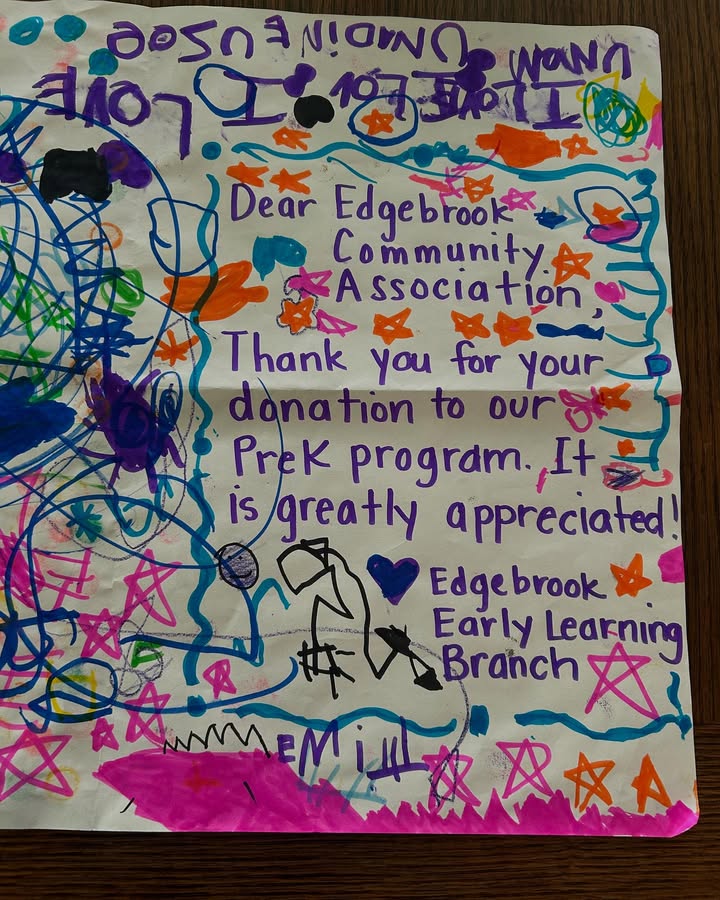 Dear Edgebrook
Community
Association,
Thank you for your
donation to our
PreK program. It
is greatly appreciated!
Edgebrook
Early Learning
Branch
I LOVE I LOVE